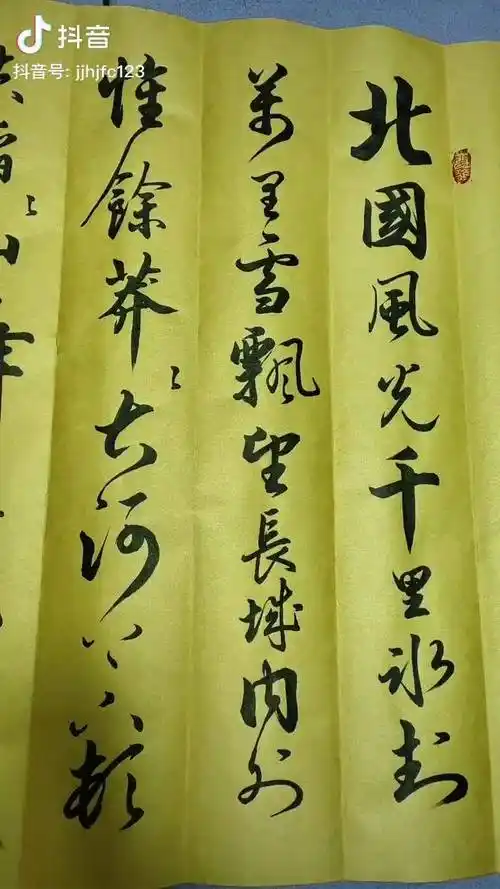 抖音
抖音号: jjhjfc123
北國風光千里冰封
萬里雪飄望長城内外
惟餘莽〻大河上下頓